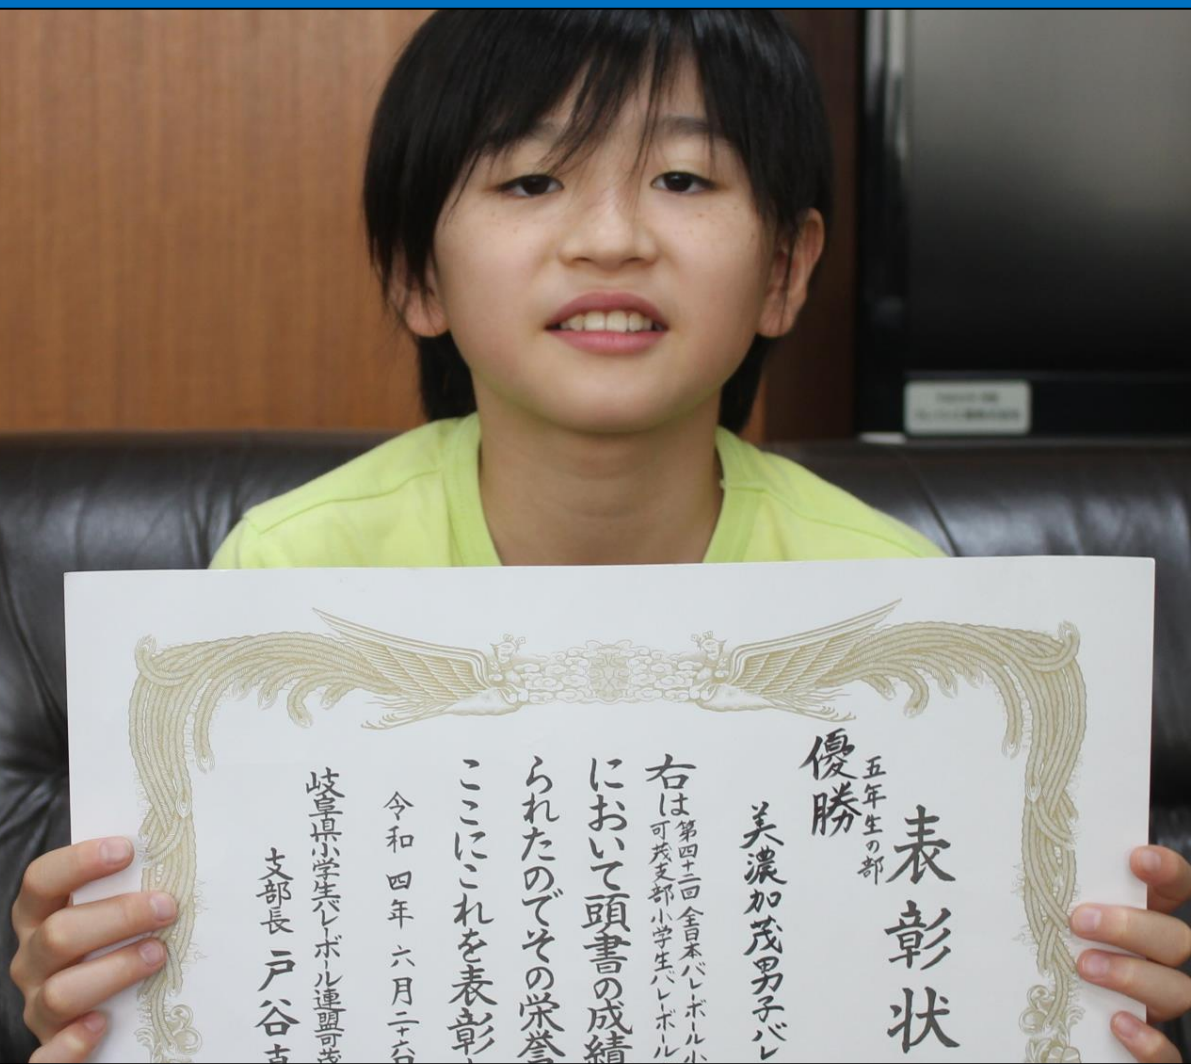 表彰状
五年生の部
優勝
美濃加茂男子バレ
右は第四十二回全日本バレーボール小
可茂支部小学生バレーボール
において頭書の成績
られたのでその栄誉
ここにこれを表彰
令和四年六月二十六日
岐阜県小学生バレーボール連盟可茂
支部長 戸谷